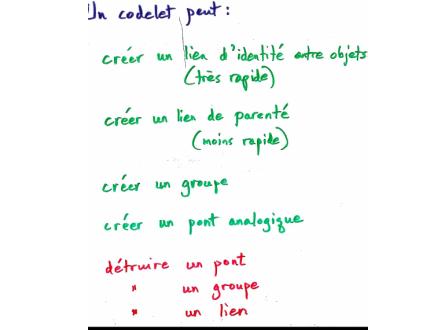 Un codelet peut :
créer un lien d'identité entre objets
(très rapide)
créer un lien de parenté
(moins rapide)
créer un groupe
créer un pont analogique
détruire un pont
" un groupe
" un lien